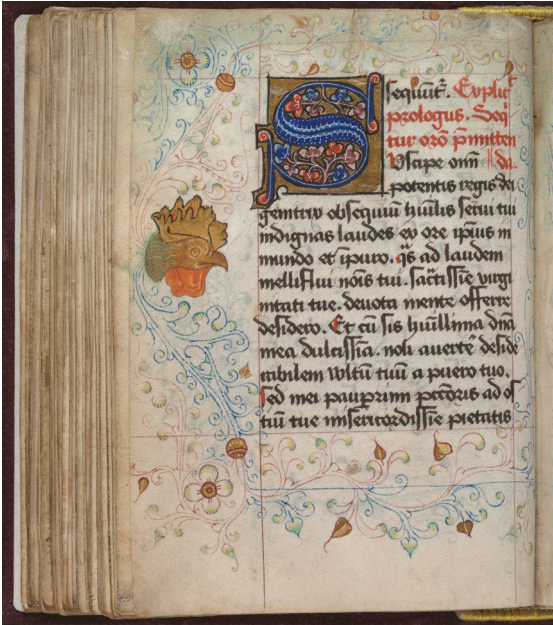 S sequūt᷒. Explic̄
prologus. Seq̄
tur orō p̄mitten
Uscipe om̄i da.
potentis regis dei
genitrix obsequiū hūilis serui tui
indignas laudes ex ore ipius in
mundo et īpuro. q̄s ad laudem
melliflui nōis tui. sāctissīe uirgi
nitati tue. deuota mente offerre
desidero. Et cū sis hūillima dn̄a
mea dulcissīa. noli auerte᷒ deside
rabilem vultū tuū a puero tuo.
sed mei paup̄rimi pctōris ad os
tiū tue misericordissīe pietatis